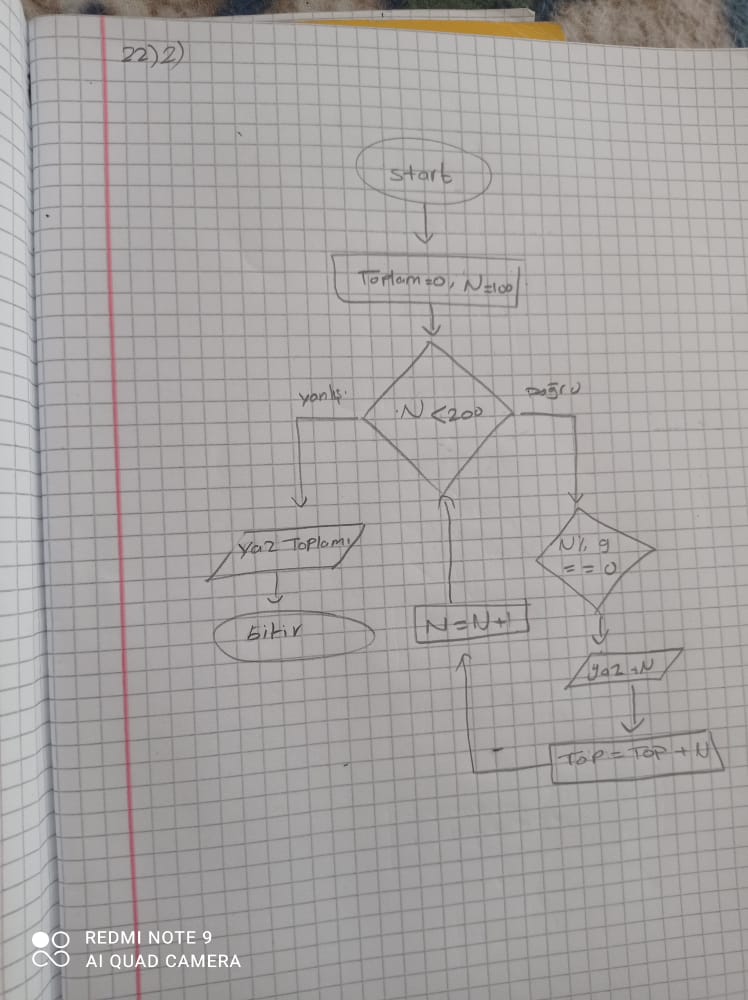 22)2)
Start
Toplam=0, N=100
N<200
yanlış
Doğru
yaz Toplamı
bitir
N=N+1
N% 9
== 0
yaz N
Top = Top + N
REDMI NOTE 9
AI QUAD CAMERA